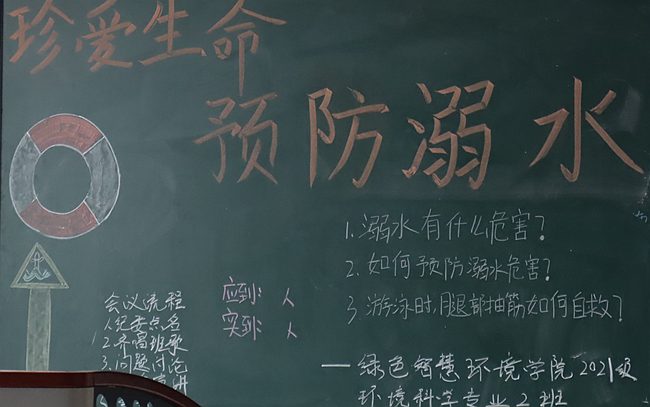 珍爱生命
预防溺水
1.溺水有什么危害？
2.如何预防溺水危害？
3.游泳时，腿部抽筋如何自救？
应到：人
实到：人
会议流程
1.纪委点名
2.齐唱班歌
3.问题讨论
讲
——绿色智慧环境学院2021级
环境科学专业2班